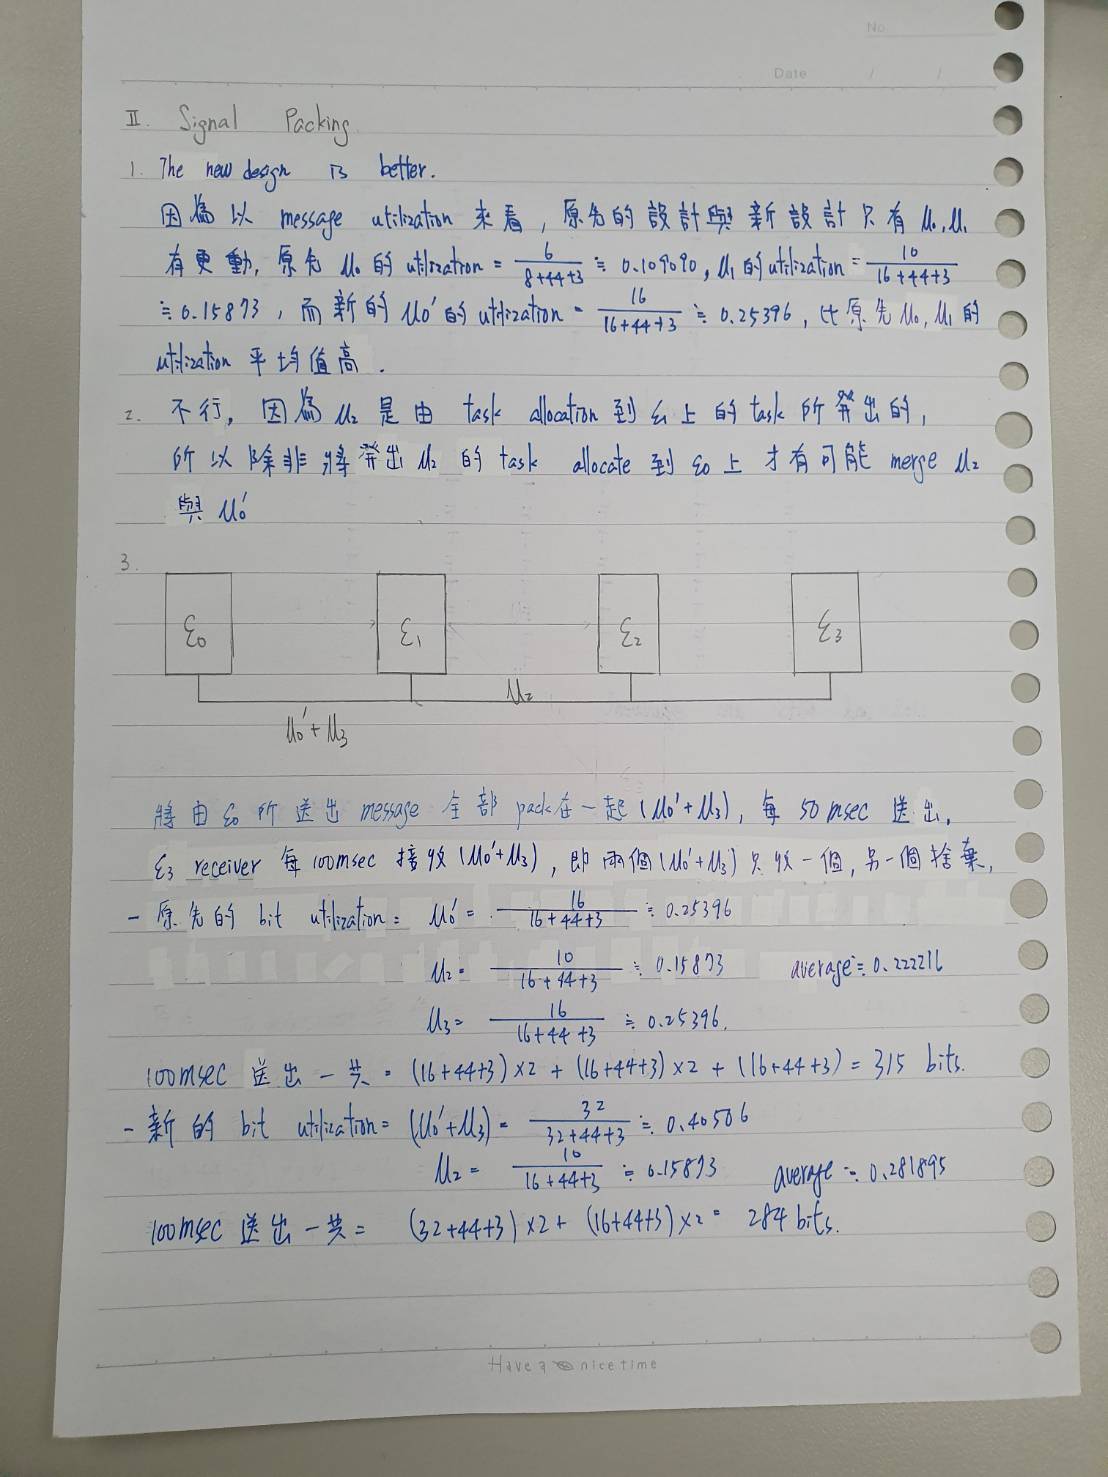 No.
Date / /
II. Signal Packing
1. The new design is better.
因為以 message utilization 來看，原先的設計與新設計只有 μ₀, μ₁
有更動，原先 μ₀ 的 utilization = 6/(8+44+3) ≒ 0.109090, μ₁ 的 utilization = 10/(16+44+3)
≒ 0.15873，而新的 μ₀' 的 utilization = 16/(16+44+3) ≒ 0.25396，比原先 μ₀, μ₁ 的
utilization 平均值高.
2. 不行，因為 μ₂ 是由 task allocation 到 ε₁ 上的 task 所發出的，
所以除非將發出 μ₂ 的 task allocate 到 ε₀ 上才有可能 merge μ₂
與 μ₀'
3.
ε₀ ε₁ ε₂ ε₃
μ₂
μ₀' + μ₃
將由 ε₀ 所送出 message 全部 pack 在一起 (μ₀'+μ₃)，每 50 msec 送出，
ε₃ receiver 每 100msec 接收 (μ₀'+μ₃)，即兩個 (μ₀'+μ₃) 只收一個，另一個捨棄，
- 原先的 bit utilization = μ₀' = 16/(16+44+3) ≒ 0.25396
μ₂ = 10/(16+44+3) ≒ 0.15873 average ≒ 0.222216
μ₃ = 16/(16+44+3) ≒ 0.25396.
100msec 送出一共 = (16+44+3)×2 + (16+44+3)×2 + (16+44+3) = 315 bits.
- 新的 bit utilization = (μ₀'+μ₃) = 32/(32+44+3) ≒ 0.40506
μ₂ = 10/(16+44+3) ≒ 0.15873 average ≒ 0.281895
100msec 送出一共 = (32+44+3)×2 + (16+44+3)×2 = 284 bits.
Have a nice time